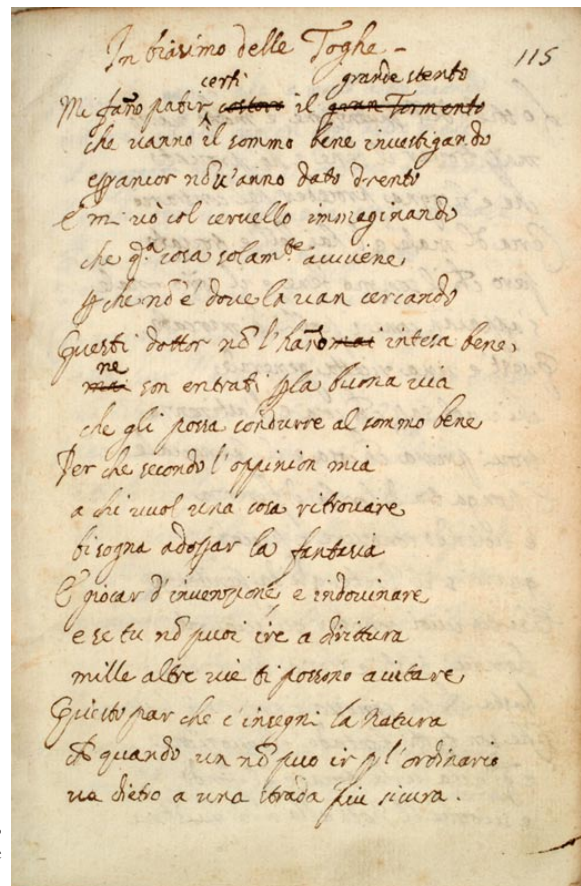 In biasimo delle Toghe -
115
certi grande stento
Mi fano patir costoro il gran Tormento
che vanno il sommo bene investigando
e per ancor nō v'anno dato drento
E mi vò col cervello immaginando
che q.ᵃ cosa solam.ᵗᵉ avviene,
p che nō è dove la van cercando
Questi dottor nō l'hano mai intesa bene,
ne
mai son entrati p la buona via
che gli possa condurre al sommo bene
Per che secondo l'oppinion mia
a chi vuol una cosa ritrovare,
bisogna adossar la fantasia
E giocar d'invenzione, e indovinare,
e se tu nō puoi ire a dirittura
mille altre vie ti possono aiutare,
Questo par che c'insegni la Natura
che quando un nō puo ir p l'ordinario
va dietro a una strada piu sicura.